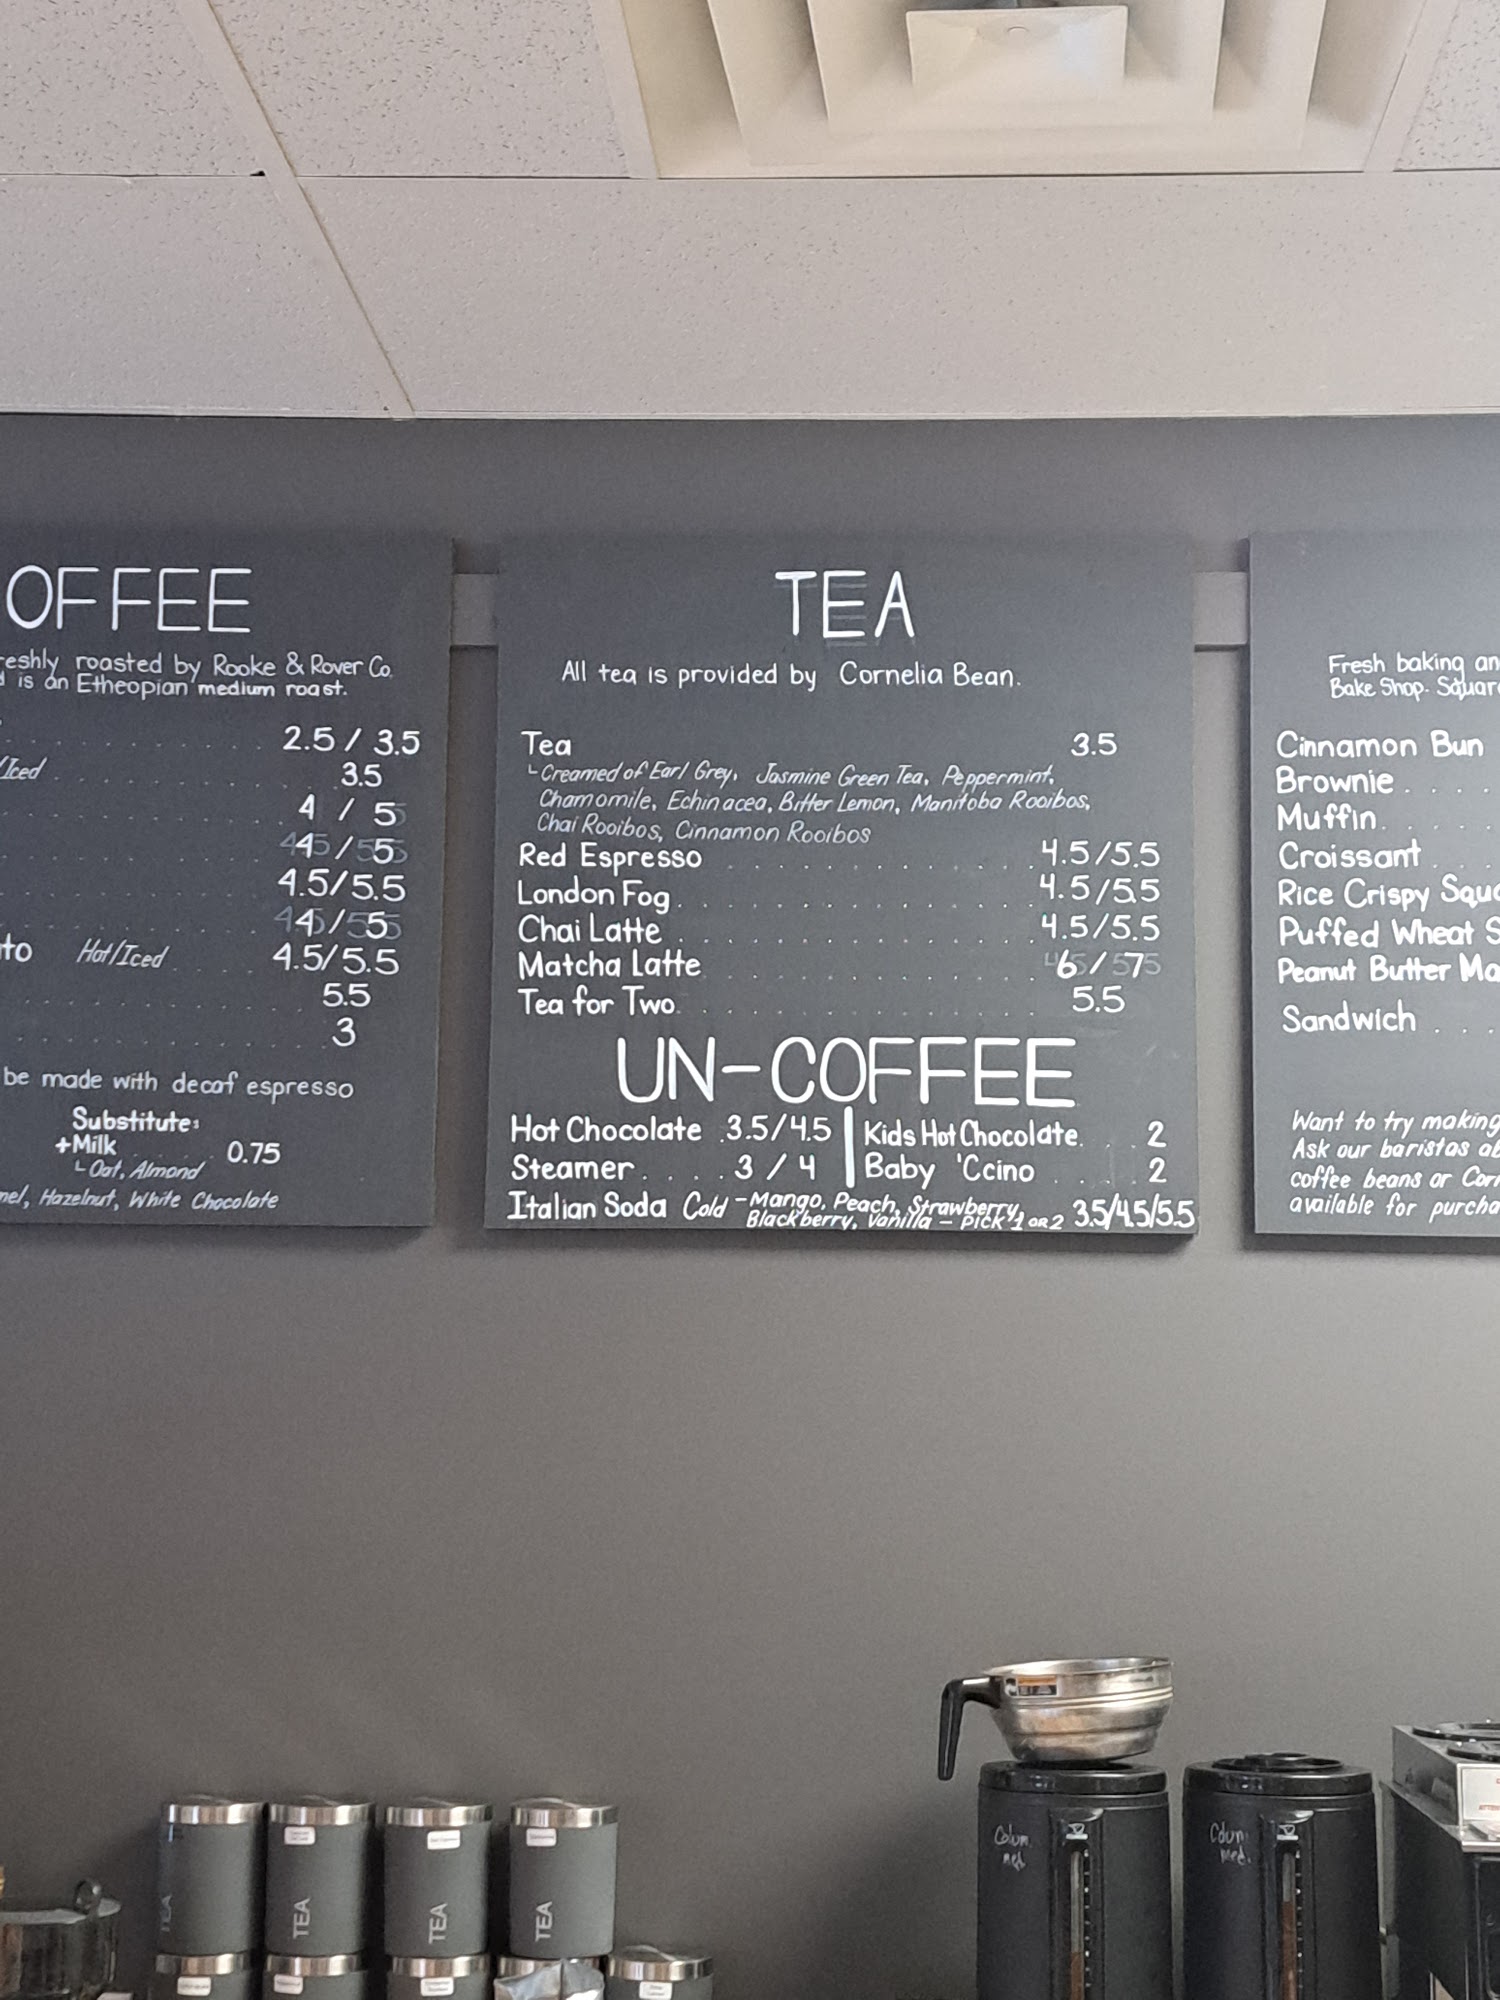 OFFEE
reshly roasted by Rooke & Rover Co.
is an Etheopian medium roast.
2.5 / 3.5
/Iced 3.5
4 / 5
4 5 / 5
4.5/5.5
4 / 5
to Hot/Iced 4.5/5.5
5.5
3
be made with decaf espresso
Substitute:
+Milk 0.75
Oat, Almond
mel, Hazelnut, White Chocolate
TEA
All tea is provided by Cornelia Bean.
Tea 3.5
Creamed of Earl Grey, Jasmine Green Tea, Peppermint,
Chamomile, Echinacea, Bitter Lemon, Manitoba Rooibos,
Chai Rooibos, Cinnamon Rooibos
Red Espresso 4.5/5.5
London Fog 4.5/5.5
Chai Latte 4.5/5.5
Matcha Latte 6 / 7
Tea for Two 5.5
UN-COFFEE
Hot Chocolate 3.5/4.5
Steamer 3 / 4
Kids Hot Chocolate 2
Baby 'Ccino 2
Italian Soda Cold - Mango, Peach, Strawberry,
Blackberry, Vanilla - pick 1 or 2 3.5/4.5/5.5
Fresh baking an
Bake Shop. Squar
Cinnamon Bun
Brownie
Muffin
Croissant
Rice Crispy Squa
Puffed Wheat S
Peanut Butter Ma
Sandwich
Want to try making
Ask our baristas ab
coffee beans or Corn
available for purcha
TEA
TEA
TEA
TEA
Colum.
med.
Colum.
med.